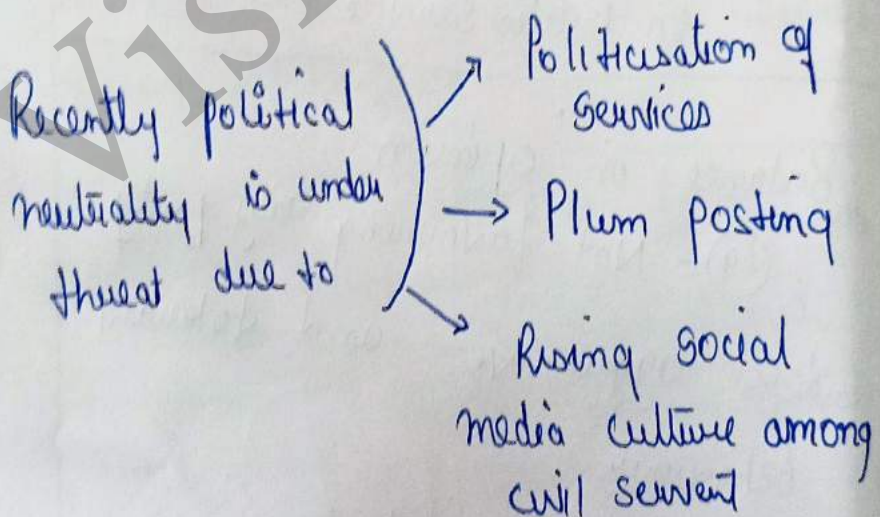 Recently political
neutrality is under
threat due to
Politicisation of
Services
Plum posting
Rising social
media culture among
civil servent